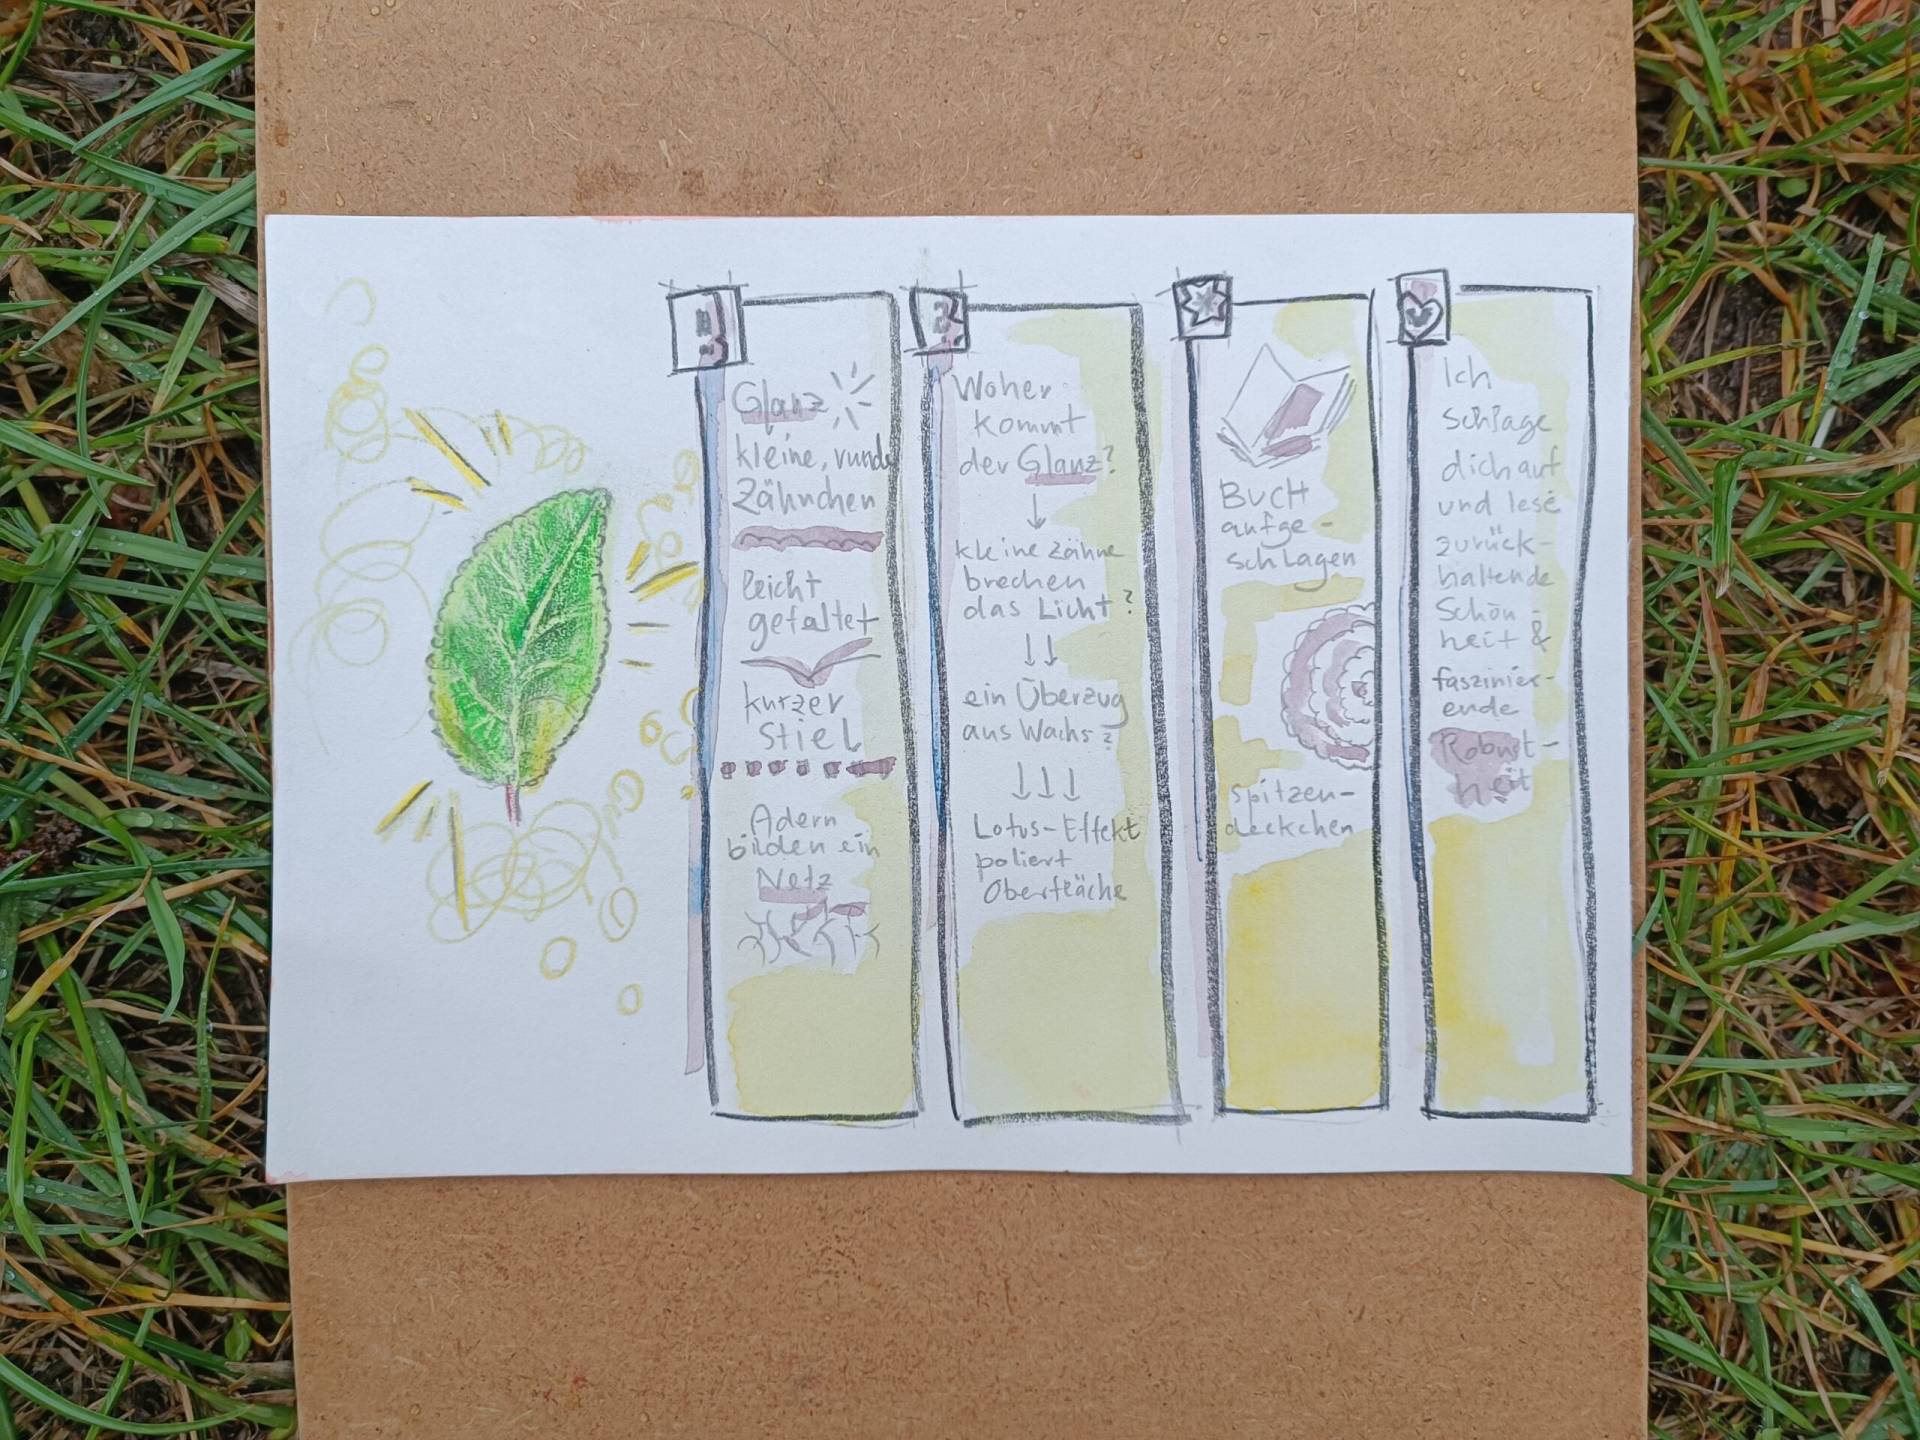 Glanz
kleine, runde
Zähnchen
leicht
gefaltet
kurzer
Stiel
Adern
bilden ein
Netz
Woher
kommt
der Glanz?
kleine Zähne
brechen
das Licht?
ein Überzug
aus Wachs?
Lotus-Effekt
poliert
Oberfläche
BUCH
aufge-
schlagen
spitzen-
deckchen
Ich
schlage
dich auf
und lese
zurück-
haltende
Schön-
heit &
faszinier-
ende
Robust-
heit